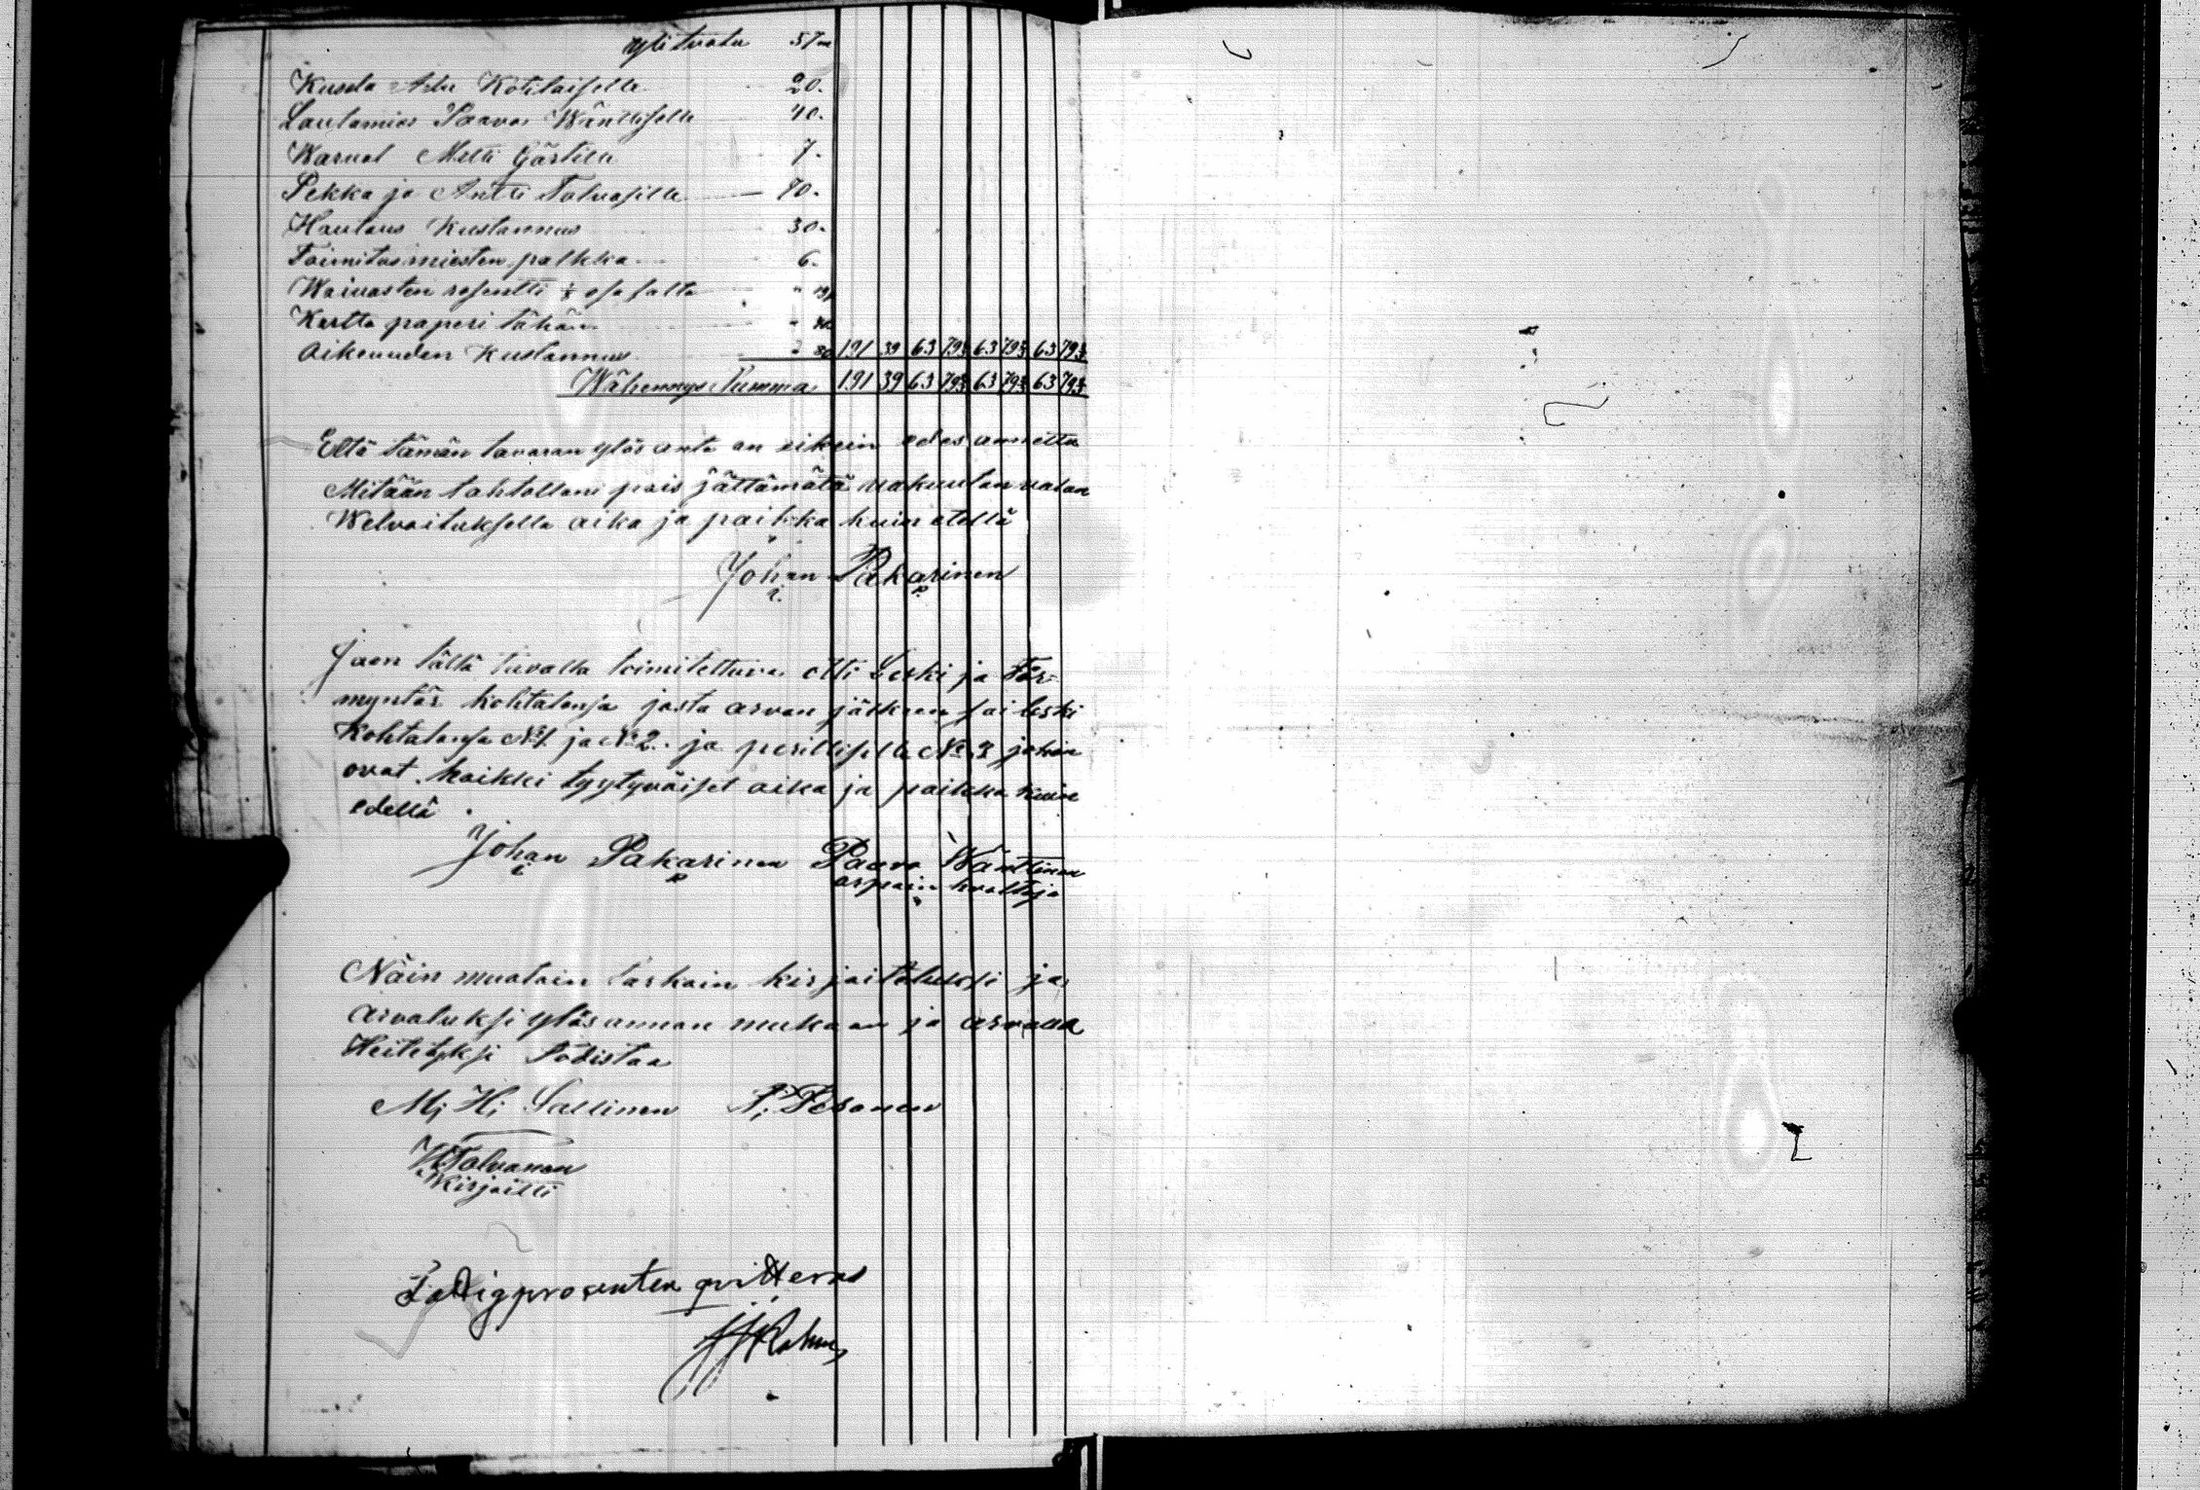 ylituotu 57 "
Kusda Adu Kohtaiselle 20.
Lautamies Paavo Wänttiselle 40.
Matti 7.
Pekka ja Antti Tolvasille 70.
Hautaus Kustannus 30.
Toimitus miesten palkka 6.
Waivasten rosentti ⅛ osasalta "
Kartta paperi tähän "
Oikeuden Kustannus 191 39 63 79⅔ 63 79⅔ 63 79⅔
Wähennys Summa 191 39 63 79⅔ 63 79⅔ 63 79⅔
Että tämän tavaran ylös anto on oikein edes annettu
Mitään tahtollani pois jättämätä vakuutan valan
Welvoituksella aika ja paikka kuin etellä
Johan Pakarinen
Jaon tällä tavalla toimitettuva otti Leski ja För=
myntär kohtalonsa josta arvan jälkeen sai leski
Kohtalonsa No 1. ja No 2. ja perilliselle No 3 johon
ovat kaikki tyytyväiset aika ja paikka kuin
edellä
Johan Pakarinen Paavo Wänttinen
orpoin holtoja
Näin muotoin tarkoin kirjoitetuksi ja
arvatuksi ylös annon mukaan ja arvan
Heitetyksi Todistaa
M; H; Sallinen P; Pesonen
Tolvanen
Kirjoitti
Fattigprocenten qvitteras